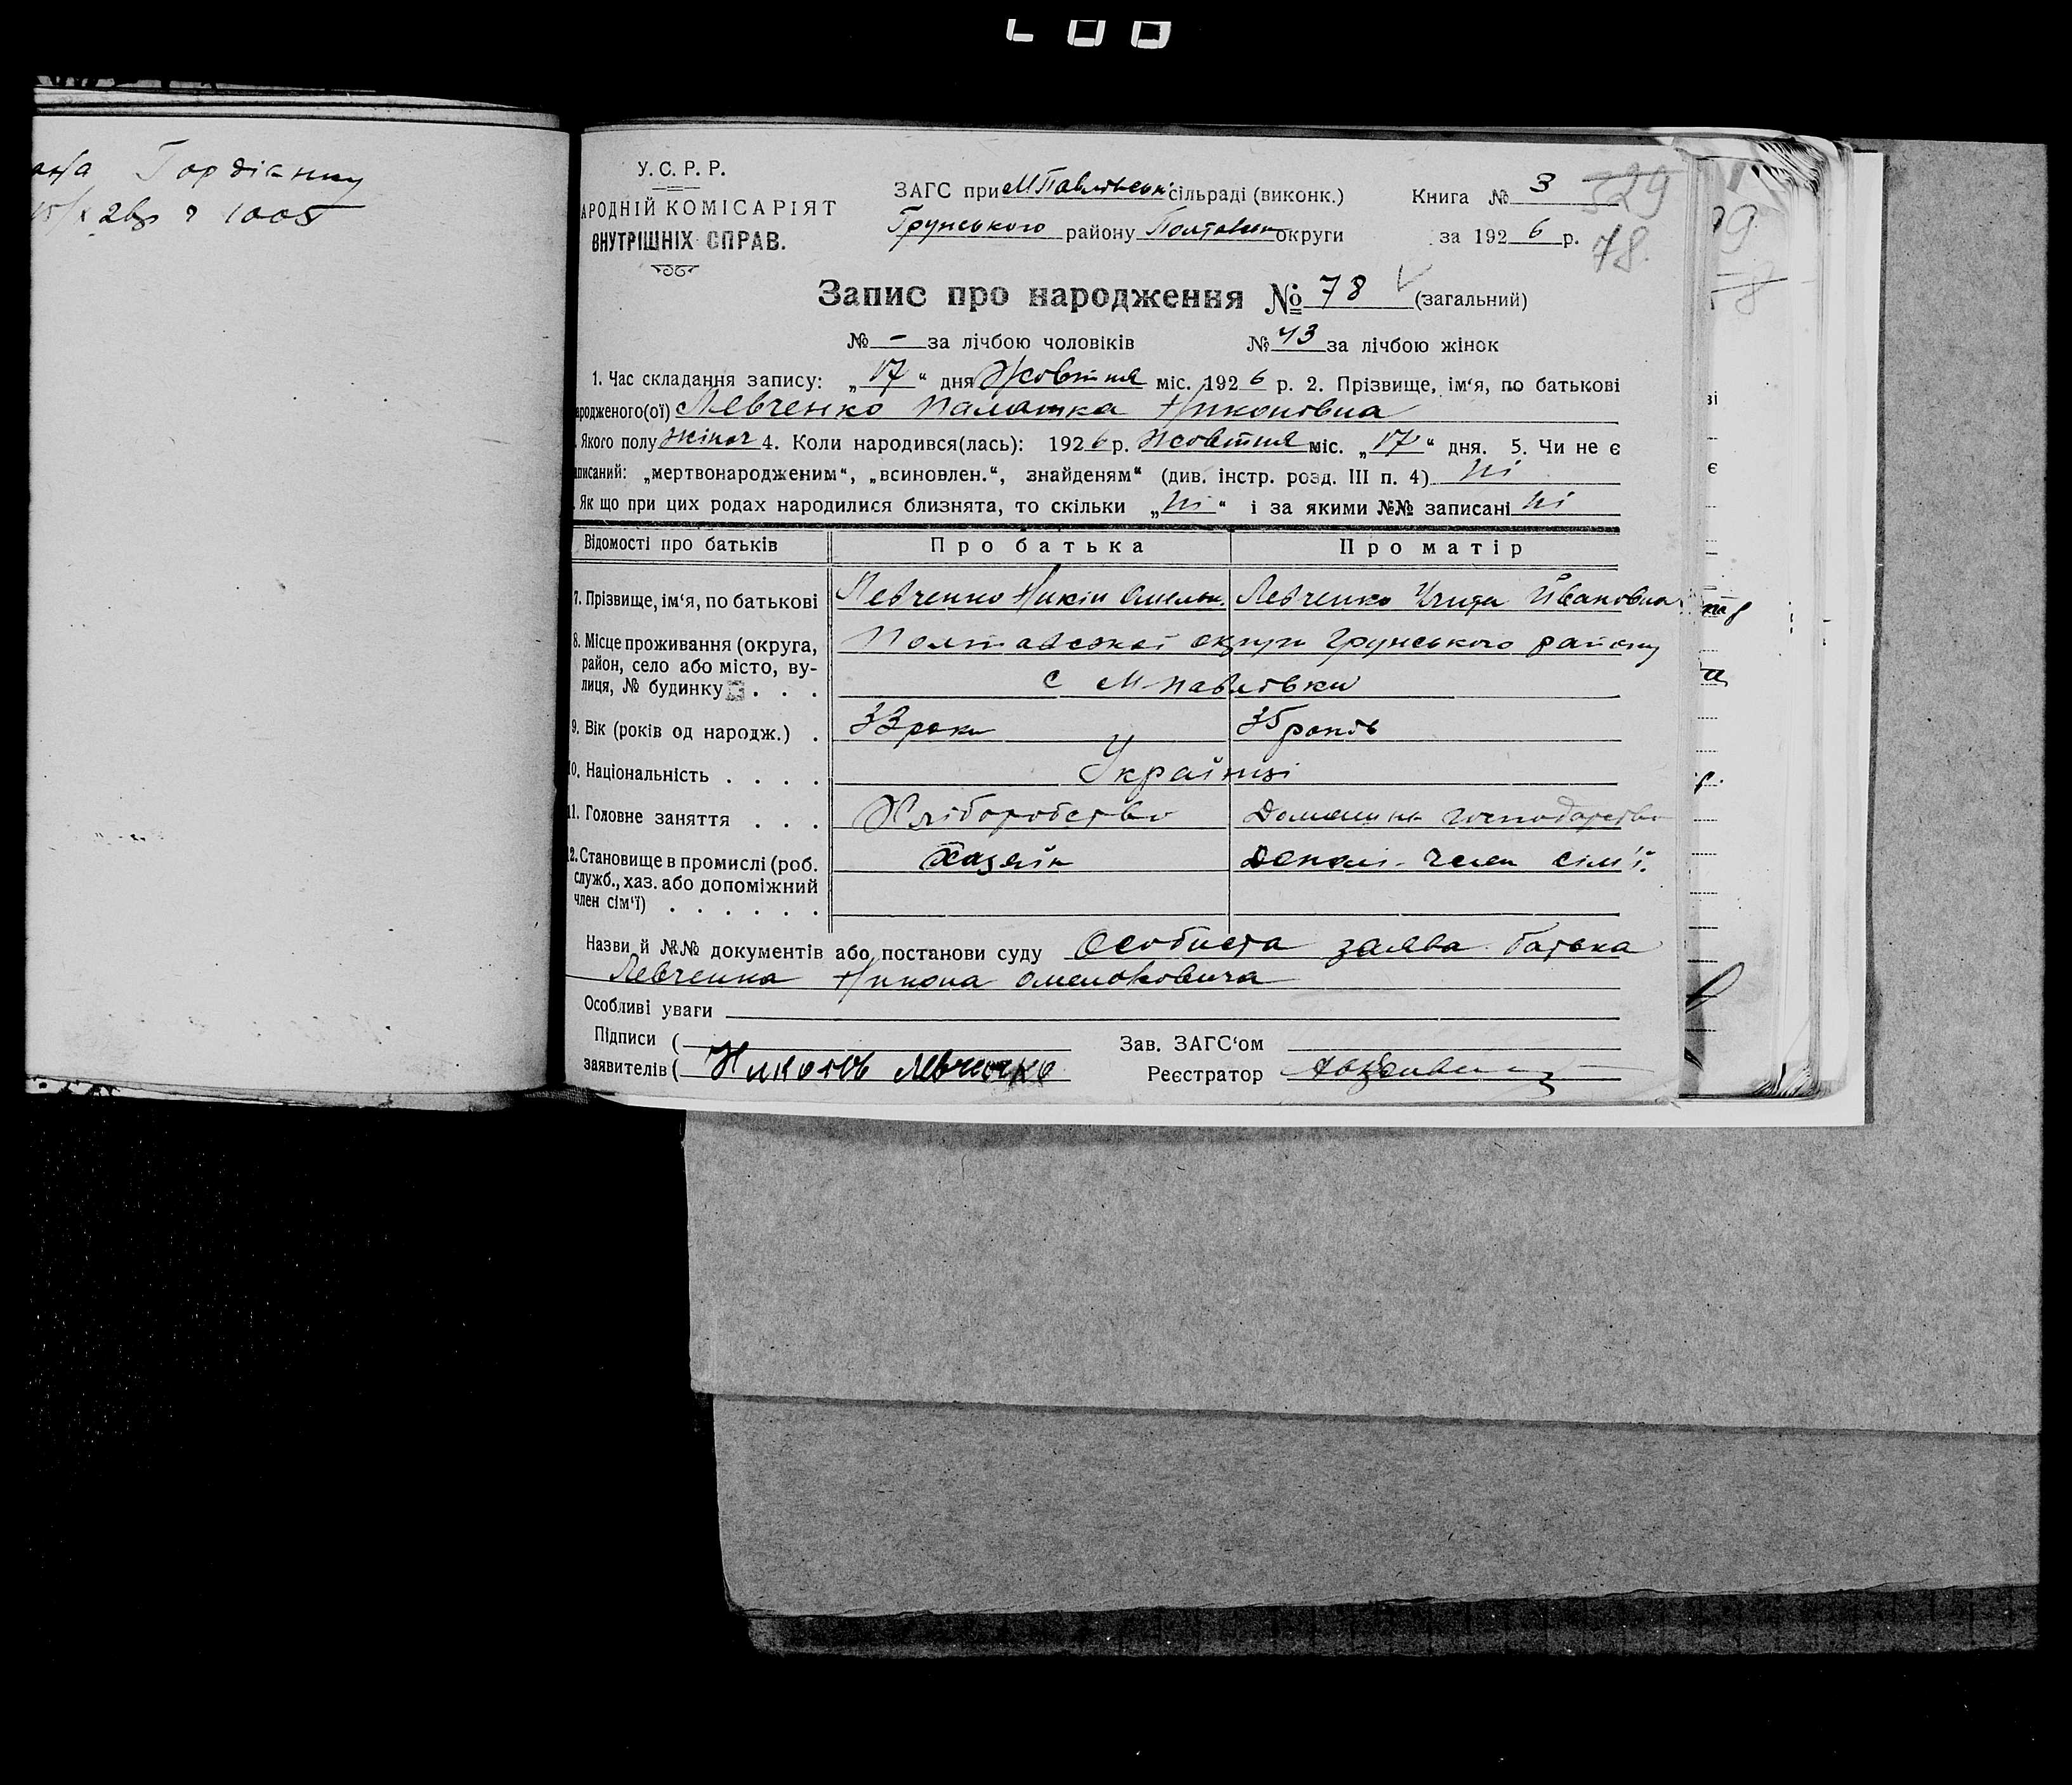 Гордієнку
1005
У. С. Р. Р.
АРОДНІЙ КОМІСАРІЯТ
ВНУТРІШНІХ СПРАВ.
ЗАГС при М Павлівськ. сільраді (виконк.)
Грунського району Полтавськ округи
Книга № 3
за 1926 р.
529
78.
Запис про народження № 78 (загальний)
№ - за лічбою чоловіків № 43 за лічбою жінок
1. Час складання запису: „17“ дня Жовтня міс. 1926 р. 2. Прізвище, ім'я, по батькові
ародженого(ої) Левченко Палажка Никонівна
Якого полу жіноч 4. Коли народився(лась): 1926 р. Жовтня міс. „17“ дня. 5. Чи не є
аписаний: „мертвонародженим“, „всиновлен.“, знайденям“ (див. інстр. розд. III п. 4) ні
Як що при цих родах народилися близнята, то скільки „ні“ і за якими №№ записані ні
Відомості про батьків Про батька Про матір
7. Прізвище, ім'я, по батькові Левченко Никін Омельк. Левченко Івановна
8. Місце проживання (округа, Полтавської округи Грунського району
район, село або місто, ву-
лиця, № будинку . . . с М-павлівки
9. Вік (років од народж.) . 33 роки 35 років
10. Національність . . . . Українці
11. Головне заняття . . . Хліборобство Домашнє господарство
12. Становище в промислі (роб. Хазяїн допомі. член сім'ї.
служб., хаз. або допоміжний
член сім'ї) . . . . . .
Назви й №№ документів або постанови суду Особиста заява батька
Левченка Никона Омельковича
Особливі уваги
Підписи (
Зав. ЗАГС'ом
заявителів ( Никонъ Левченко
Реєстратор